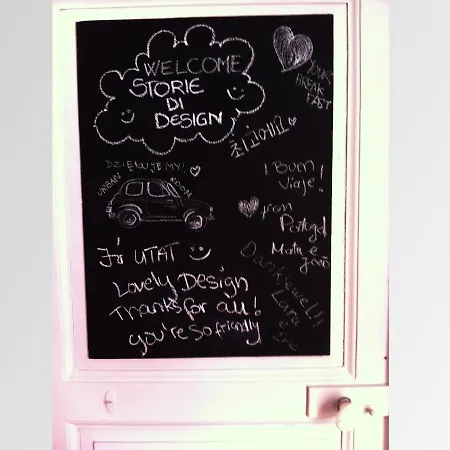 WELCOME
STORIE
DI
DESIGN
BREAK
FAST
최고에요
DZIĘKUJEMY!
URBAN
¡Buon
Viaje!
from
Portugal
Marta e
João
Jó UTAT
Lovely Design
Thanks for all!
you're so friendly
Dankjewel!!
Lara